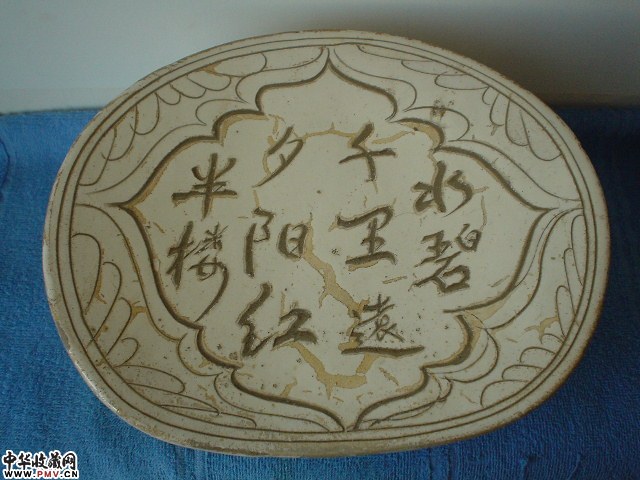 水碧
千里遠
夕阳红
半楼
中华收藏网
WWW.PMV.CN